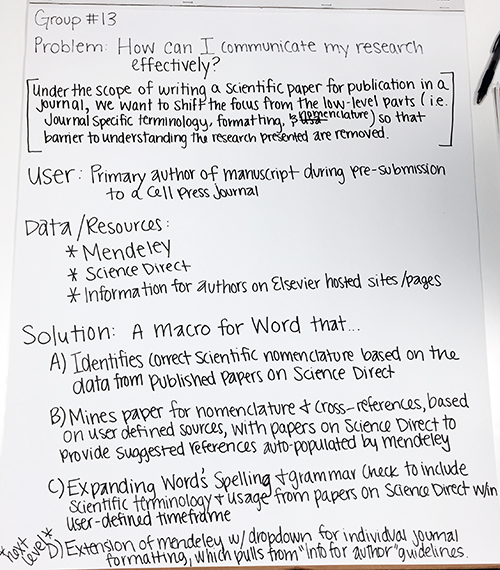 Group #13
Problem: How can I communicate my research
effectively?
[Under the scope of writing a scientific paper for publication in a
journal, we want to shift the focus from the low-level parts (i.e.
Journal specific terminology, formatting, & nomenclature) so that
barrier to understanding the research presented are removed.]
User: Primary author of manuscript during pre-submission
to a Cell Press Journal
Data/Resources:
* Mendeley
* Science Direct
* Information for authors on Elsevier hosted sites/pages
Solution: A macro for Word that...
A) Identifies correct scientific nomenclature based on the
data from published papers on Science Direct
B) Mines paper for nomenclature & cross-references, based
on user defined sources, with papers on Science Direct to
provide suggested references auto-populated by mendeley
C) Expanding Word's Spelling & grammar check to include
scientific terminology & usage from papers on Science Direct w/in
user-defined timeframe
*next level* D) Extension of mendeley w/ dropdown for individual journal
formatting, which pulls from "info for author" guidelines.